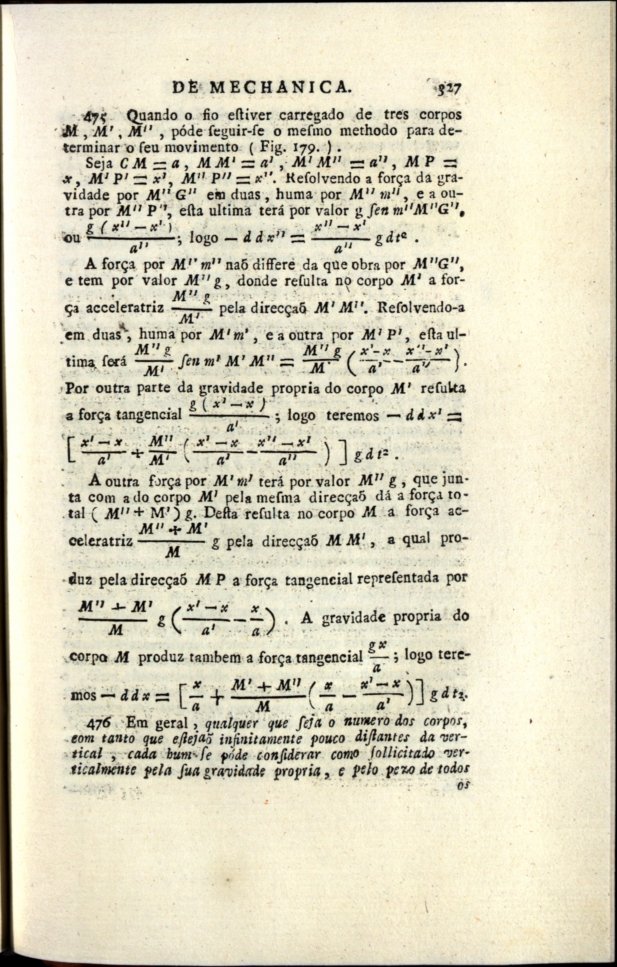 DE MECHANICA. 327
475 Quando o fio eſtiver carregado de tres corpos
M, M', M'', póde ſeguir-ſe o meſmo methodo para de-
terminar o ſeu movimento ( Fig. 179. ) .
Seja CM = a, MM' = a', M'M'' = a'', MP =
x, M'P' = x', M''P'' = x''. Reſolvendo a força da gra-
vidade por M''G'' em duas, huma por M''m'', e a ou-
tra por M''P'', eſta ultima terá por valor g ſen m''M''G'',
ou g ( x'' — x' ) / a'' ; logo — ddx'' = x'' — x' / a'' g dt² .
A força por M''m'' naõ differe da que obra por M''G'',
e tem por valor M''g, donde reſulta no corpo M' a for-
ça acceleratriz M'' g / M' pela direcçaõ M'M''. Reſolvendo-a
em duas, huma por M'm', e a outra por M'P', eſta ul-
tima ſerá M''g / M' ſen m'M'M'' = M''g / M' ( x'-x / a' — x''-x' / a'' ).
Por outra parte da gravidade propria do corpo M' reſulta
a força tangencial g ( x' — x ) / a' ; logo teremos — ddx' =
[ x' — x / a' + M'' / M' ( x' — x / a' — x'' — x' / a'' ) ] g dt² .
A outra força por M'm' terá por valor M''g, que jun-
ta com a do corpo M' pela meſma direcçaõ dá a força to-
tal ( M'' + M' ) g. Deſta reſulta no corpo M a força ac-
celeratriz M'' + M' / M g pela direcçaõ MM', a qual pro-
duz pela direcçaõ MP a força tangencial repreſentada por
M'' + M' / M g ( x' — x / a' — x / a ) . A gravidade propria do
corpo M produz tambem a força tangencial gx / a ; logo tere-
mos — ddx = [ x / a + M' + M'' / M ( x / a — x' — x / a' ) ] g dt².
476 Em geral, qualquer que ſeja o numero dos corpos,
com tanto que eſtejaõ infinitamente pouco diſtantes da ver-
tical, cada hum ſe póde conſiderar como ſollicitado ver-
ticalmente pela ſua gravidade propria, e pelo pezo de todos
os